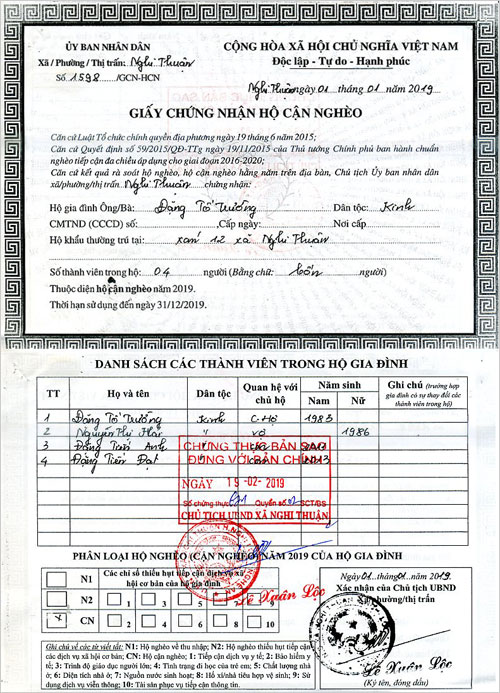 ỦY BAN NHÂN DÂN
CỘNG HÒA XÃ HỘI CHỦ NGHĨA VIỆT NAM
Xã / Phường/ Thị trấn: Nghi Thuận
Độc lập - Tự do - Hạnh phúc
Số 1598 /GCN-HCN
Nghi Thuận ngày 01 tháng 01 năm 2019
GIẤY CHỨNG NHẬN HỘ CẬN NGHÈO
Căn cứ Luật Tổ chức chính quyền địa phương ngày 19 tháng 6 năm 2015;
Căn cứ Quyết định số 59/2015/QĐ-TTg ngày 19/11/2015 của Thủ tướng Chính phủ ban hành chuẩn
nghèo tiếp cận đa chiều áp dụng cho giai đoạn 2016-2020;
Căn cứ kết quả rà soát hộ nghèo, hộ cận nghèo hằng năm trên địa bàn, Chủ tịch Ủy ban nhân dân
xã/phường/thị trấn Nghi Thuận chứng nhận:
Hộ gia đình Ông/Bà: Đặng Tố Trường Dân tộc: Kinh
CMTND (CCCD) số: Cấp ngày: Nơi cấp
Hộ khẩu thường trú tại: xóm 12 xã Nghi Thuận
Số thành viên trong hộ: 04 người (Bằng chữ: bốn người)
Thuộc diện hộ cận nghèo năm 2019.
Thời hạn sử dụng đến ngày 31/12/2019.
DANH SÁCH CÁC THÀNH VIÊN TRONG HỘ GIA ĐÌNH
TT Họ và tên Dân tộc Quan hệ với chủ hộ Năm sinh Nam Nữ Ghi chú (trường hợp gia đình có sự thay đổi các thành viên trong hộ)
1 Đặng Tố Trường Kinh C-Hộ 1983
2 Nguyễn Thị Vợ 1986
3 Đặng Tiến Anh
4 Đặng Tiến Đạt 2013
CHỨNG THỰC BẢN SAO
ĐÚNG VỚI BẢN CHÍNH
NGÀY 19-02-2019
Số chứng thực Quyển số SCT/BS
CHỦ TỊCH UBND XÃ NGHI THUẬN
PHÂN LOẠI HỘ NGHÈO CẬN NGHÈO NĂM 2019 CỦA HỘ GIA ĐÌNH
N1
N2
x CN
Các chỉ số thiếu hụt tiếp cận dịch vụ xã
hội cơ bản của hộ gia đình
1 2 3 4 5
6 7 8 9 10
Lê Xuân Lộc
Ngày 01 tháng 01 năm 2019
Xác nhận của Chủ tịch UBND
Xã/phường/thị trấn
Lê Xuân Lộc
(Ký tên, đóng dấu)
Ghi chú về các từ viết tắt: N1: Hộ nghèo về thu nhập; N2: Hộ nghèo thiếu hụt tiếp cận
các dịch vụ xã hội cơ bản; CN: Hộ cận nghèo; 1: Tiếp cận dịch vụ y tế; 2: Bảo hiểm y
tế; 3: Trình độ giáo dục người lớn; 4: Tình trạng đi học của trẻ em; 5: Chất lượng nhà
ở; 6: Diện tích nhà ở; 7: Nguồn nước sinh hoạt; 8: Hố xí/nhà tiêu hợp vệ sinh; 9: Sử
dụng dịch vụ viễn thông; 10: Tài sản phục vụ tiếp cận thông tin.